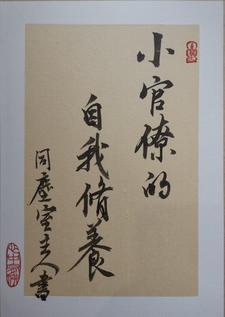 小官僚的
自我脩養
同塵室主人書